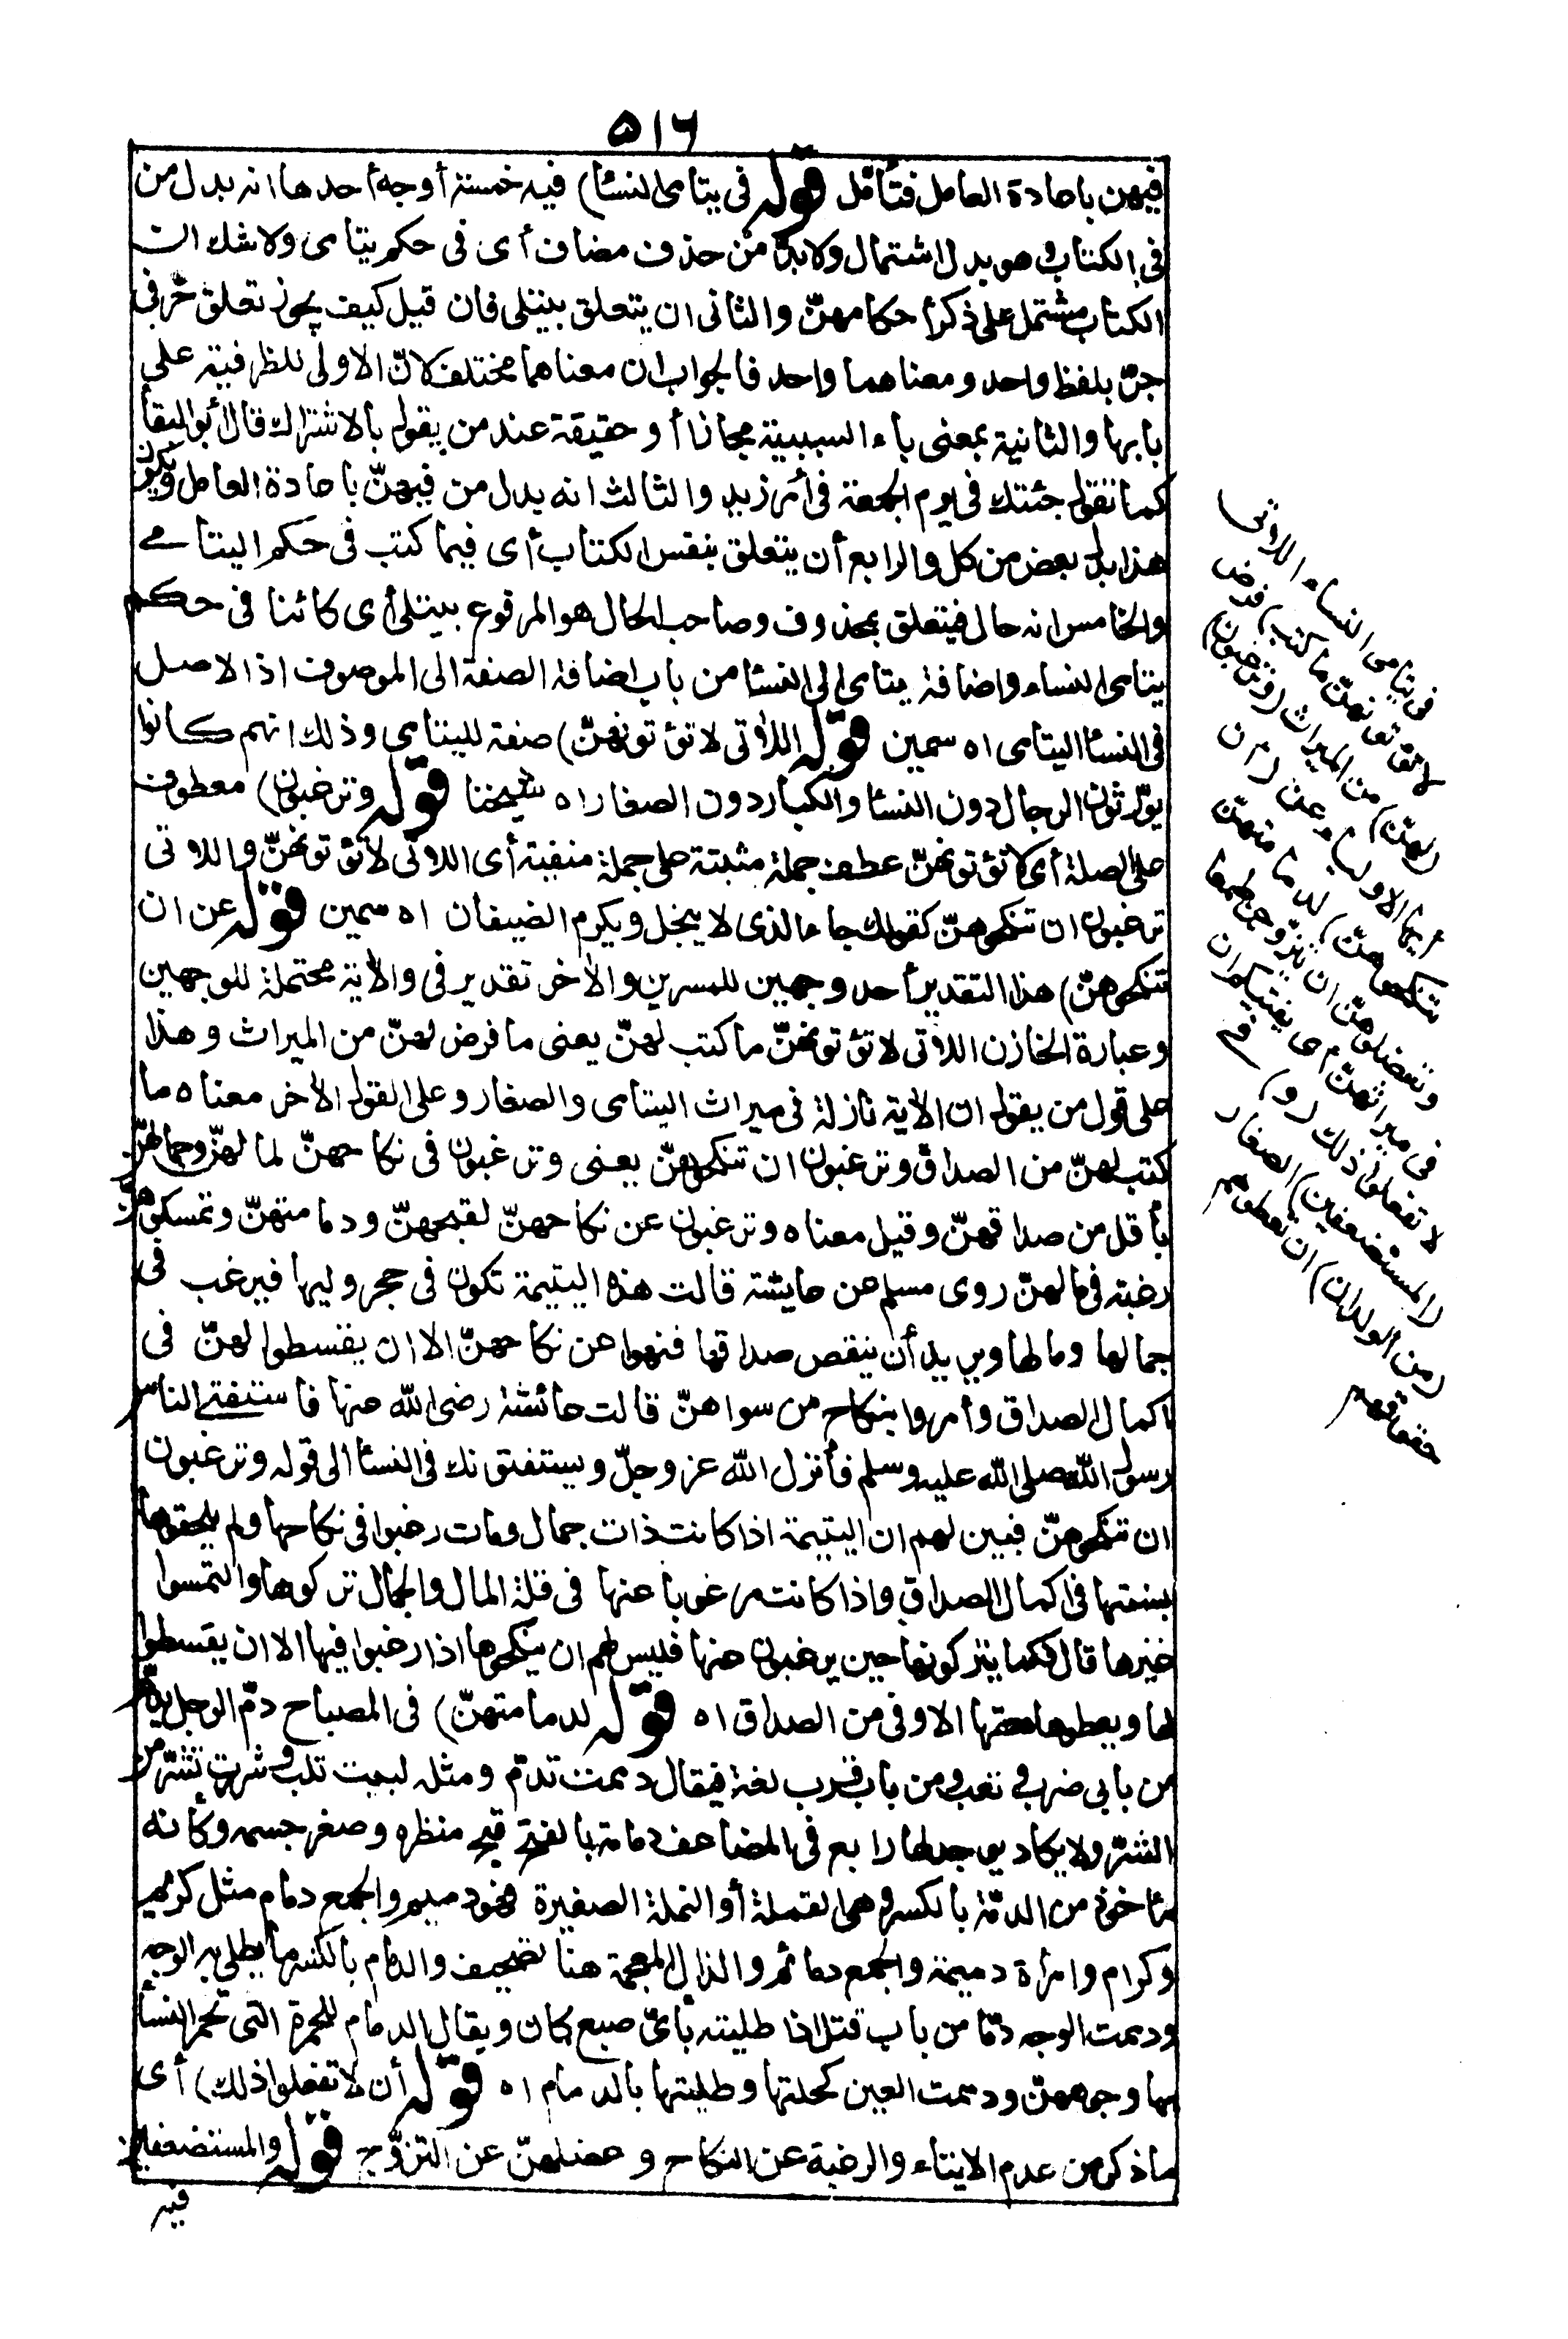 ٥١٦
فيهن باعادة العامل فتأمّل قوله فى يتامى النسآ) فيه خمسة أوجه أحدها انه بدل من
فى الكتاب وهو بدل اشتمال ولا بدّ من حذف مضاف أى فى حكم يتامى ولا شك ان
الكتاب مشتمل على ذكر أحكامهنّ والثانى ان يتعلق بيتلى فان قيل كيف يجوز تعلق حرفى
جرّ بلفظ واحد ومعناهما واحد فالجواب ان معناهما مختلف لانّ الاولى للظرفية على
بابها والثانية بمعنى باء السببية مجازا أو حقيقة عند من يقول بالاشتراك قال أبو البقا
كما تقول جئتك فى يوم الجمعة فى أمر زيد والثالث انه بدل من فيهنّ باعادة العامل ويكون
هذا بدل بعض من كل والرابع أن يتعلق بنفس الكتاب أى فيما كتب فى حكم اليتامى
والخامس انه حال فيتعلق بمحذوف وصاحب الحال هو المرفوع بيتلى أى كائنا فى حكم
يتامى النساء واضافة يتامى الى النسآ من باب اضافة الصفة الى الموصوف اذ الاصل
فى النسآ اليتامى اه سمين قوله اللاتى لا تؤتونهنّ) صفة لليتامى وذلك انهم كانوا
يورّثون الرجال دون النسآ والكبار دون الصغار اه شيخنا قوله وترغبون) معطوف
على الصلة أى لا تؤتونهنّ عطف جملة مثبتة على جملة منفية أى اللاتى لا تؤتونهنّ واللاتى
ترغبون ان تنكحوهنّ كقولك جاء الذى لا يبخل ويكرم الضيفان اه سمين قوله عن ان
تنكحوهنّ) هذا التقدير أحد وجهين للمسرين والآخر تقدير فى والآية محتملة للوجهين
وعبارة الخازن اللاتى لا تؤتونهنّ ما كتب لهنّ يعنى ما فرض لهنّ من الميراث وهذا
على قول من يقول ان الآية نازلة فى ميراث اليتامى والصغار وعلى القول الآخر معناه ما
كتب لهنّ من الصداق وترغبون ان تنكحوهنّ يعنى وترغبون فى نكاحهنّ لما لهنّ وجمالهنّ
بأقل من صداقهنّ وقيل معناه وترغبون عن نكاحهنّ لقبحهنّ ودمامتهنّ وتمسكوهنّ
رغبته فى مالهنّ روى مسلم عن عايشة قالت هذه اليتيمة تكون فى حجر وليها فيرغب فى
جمالها ومالها ويريد أن ينقص صداقها فنهوا عن نكاحهنّ الا ان يقسطوا لهنّ فى
اكمال الصداق وأمروا بنكاح من سواهنّ قالت عائشة رضى الله عنها فاستفتى الناس
رسول الله صلى الله عليه وسلم فأنزل الله عز وجلّ ويستفتونك فى النسآ الى قوله وترغبون
ان تنكحوهنّ فبين لهم ان اليتيمة اذا كانت ذات جمال ومات رغبوا فى نكاحها ولم يلحقوها
بسنتها فى اكمال الصداق واذا كانت مرغوبا عنها فى قلة المال والجمال تركوها والتمسوا
غيرها قال فكما يتركونها حين يرغبون عنها فليس لهم ان ينكحوها اذا رغبوا فيها الا ان يقسطوا
لها ويعطوها حقها الاوفى من الصداق اه قوله لدمامتهنّ) فى المصباح دمّ الرجل يدمّ
من بابى ضرب وتعب ومن باب قرب لغة فيقال دممت تدمّ ومثله لببت تلب وشررت تشرّ من
الشرّ ولا يكاد يوجد لها رابع فى المضاعف دمامة بالفتح قبح منظره وصغر جسمه وكأنه
مأخوذ من الدمّة بالكسر وهى القملة أو النملة الصغيرة فهو دميم والجمع دمام مثل كريم
وكرام وامرأة دميمة والجمع دمائم والذال المعجمة هنا تصحيف والدمام بالكسر ما يطلى به الوجه
ودممت الوجه دمّا من باب قتل اذا طليته بأىّ صبع كان ويقال الدمام للحمرة التى تحمر النسآ
بها وجوههنّ ودممت العين كحلتها وطليتها بالدمام اه قوله أن لا تفعلوا ذلك) أى
ما ذكر من عدم الايتاء والرغبة عن النكاح وعضلهنّ عن التزوّج قوله والمستضعفين
فيه
فى يتامى النساء اللاتى
لا تؤتونهنّ ما كتب) فرض
(لهنّ) من الميراث (وترغبون)
أيها الاولياء عن (أن
تنكحوهنّ) لدمامتهنّ
وتعضلوهنّ ان يتزوجن طمعا
فى ميراثهنّ أى يفتيكم ان
لا تفعلوا ذلك (و) فى
(المستضعفين) الصغار
(من الولدان) ان تعطوهم
حقوقهم